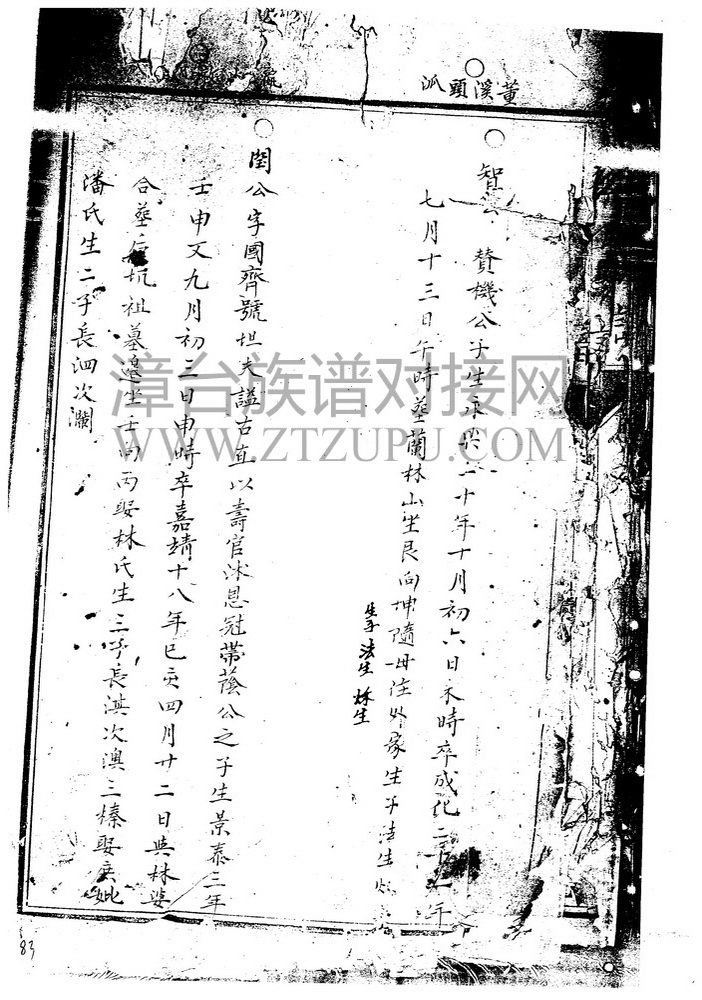 董溪頭派
智公 贊機公子生永樂二十年十月初六日未時卒成化二十一年
七月十三日午時塟蘭林山坐艮向坤隨母往外家生子法生
生子 法生 秌生
閏公字國齊號坦夫謚古直以壽官沐恩冠帶蔭公之子生景泰三年
壬申又九月初二日申時卒嘉靖十八年巳亥四月廿二日與林婆
合塟后坑祖墓邉坐壬向丙娶林氏生三子長淇次澳三榛娶庶妣
潘氏生二子長泗次瀾
漳台族谱对接网
WWW.ZTZUPU.COM
83